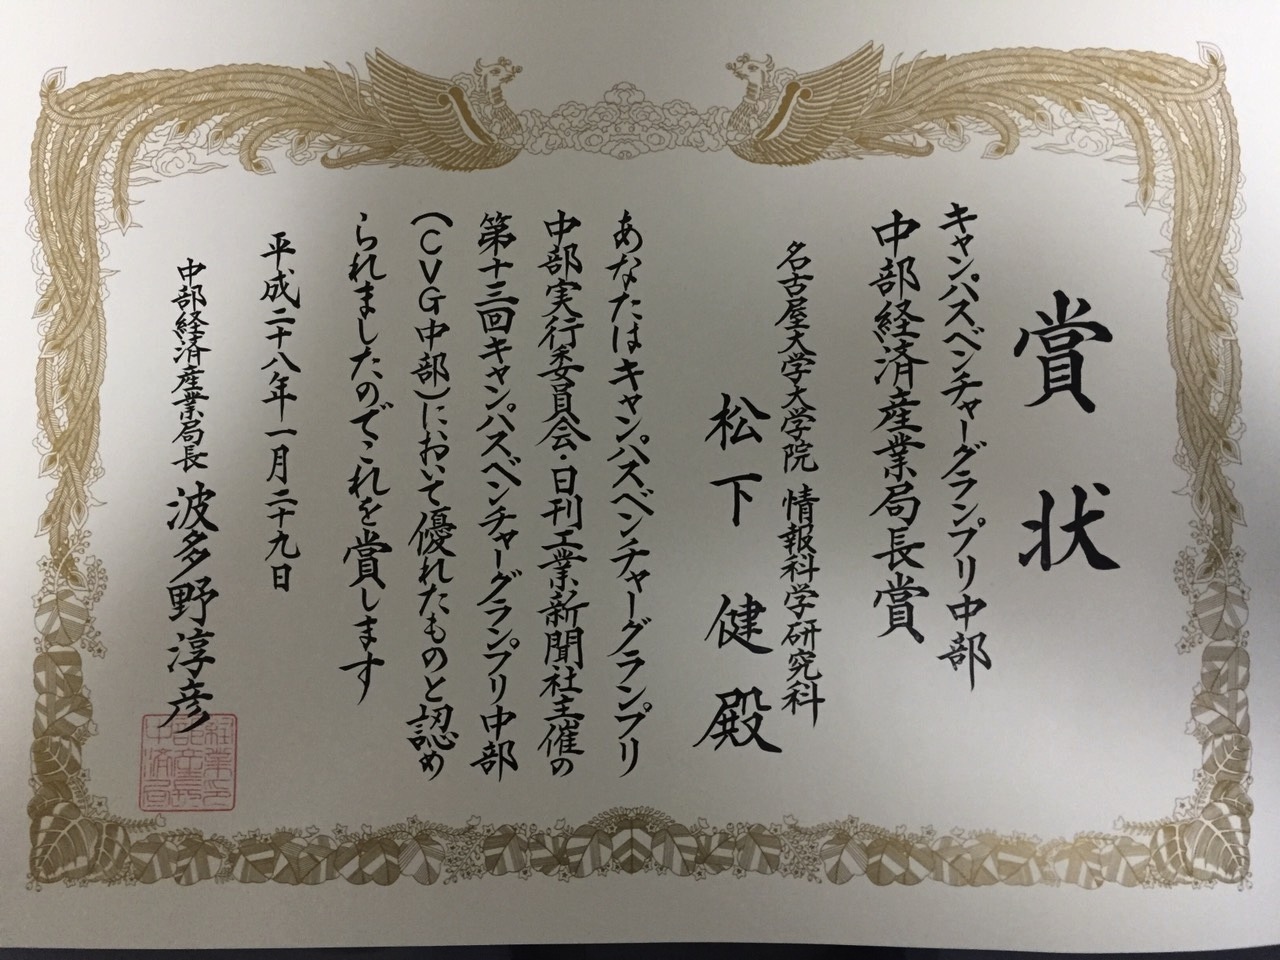 賞状
キャンパスベンチャーグランプリ中部
中部経済産業局長賞
名古屋大学大学院 情報科学研究科
松下 健 殿
あなたはキャンパスベンチャーグランプリ
中部実行委員会・日刊工業新聞社主催の
第十三回キャンパスベンチャーグランプリ中部
(CVG中部)において優れたものと認め
られましたのでこれを賞します
平成二十八年一月二十九日
中部経済産業局長 波多野淳彦